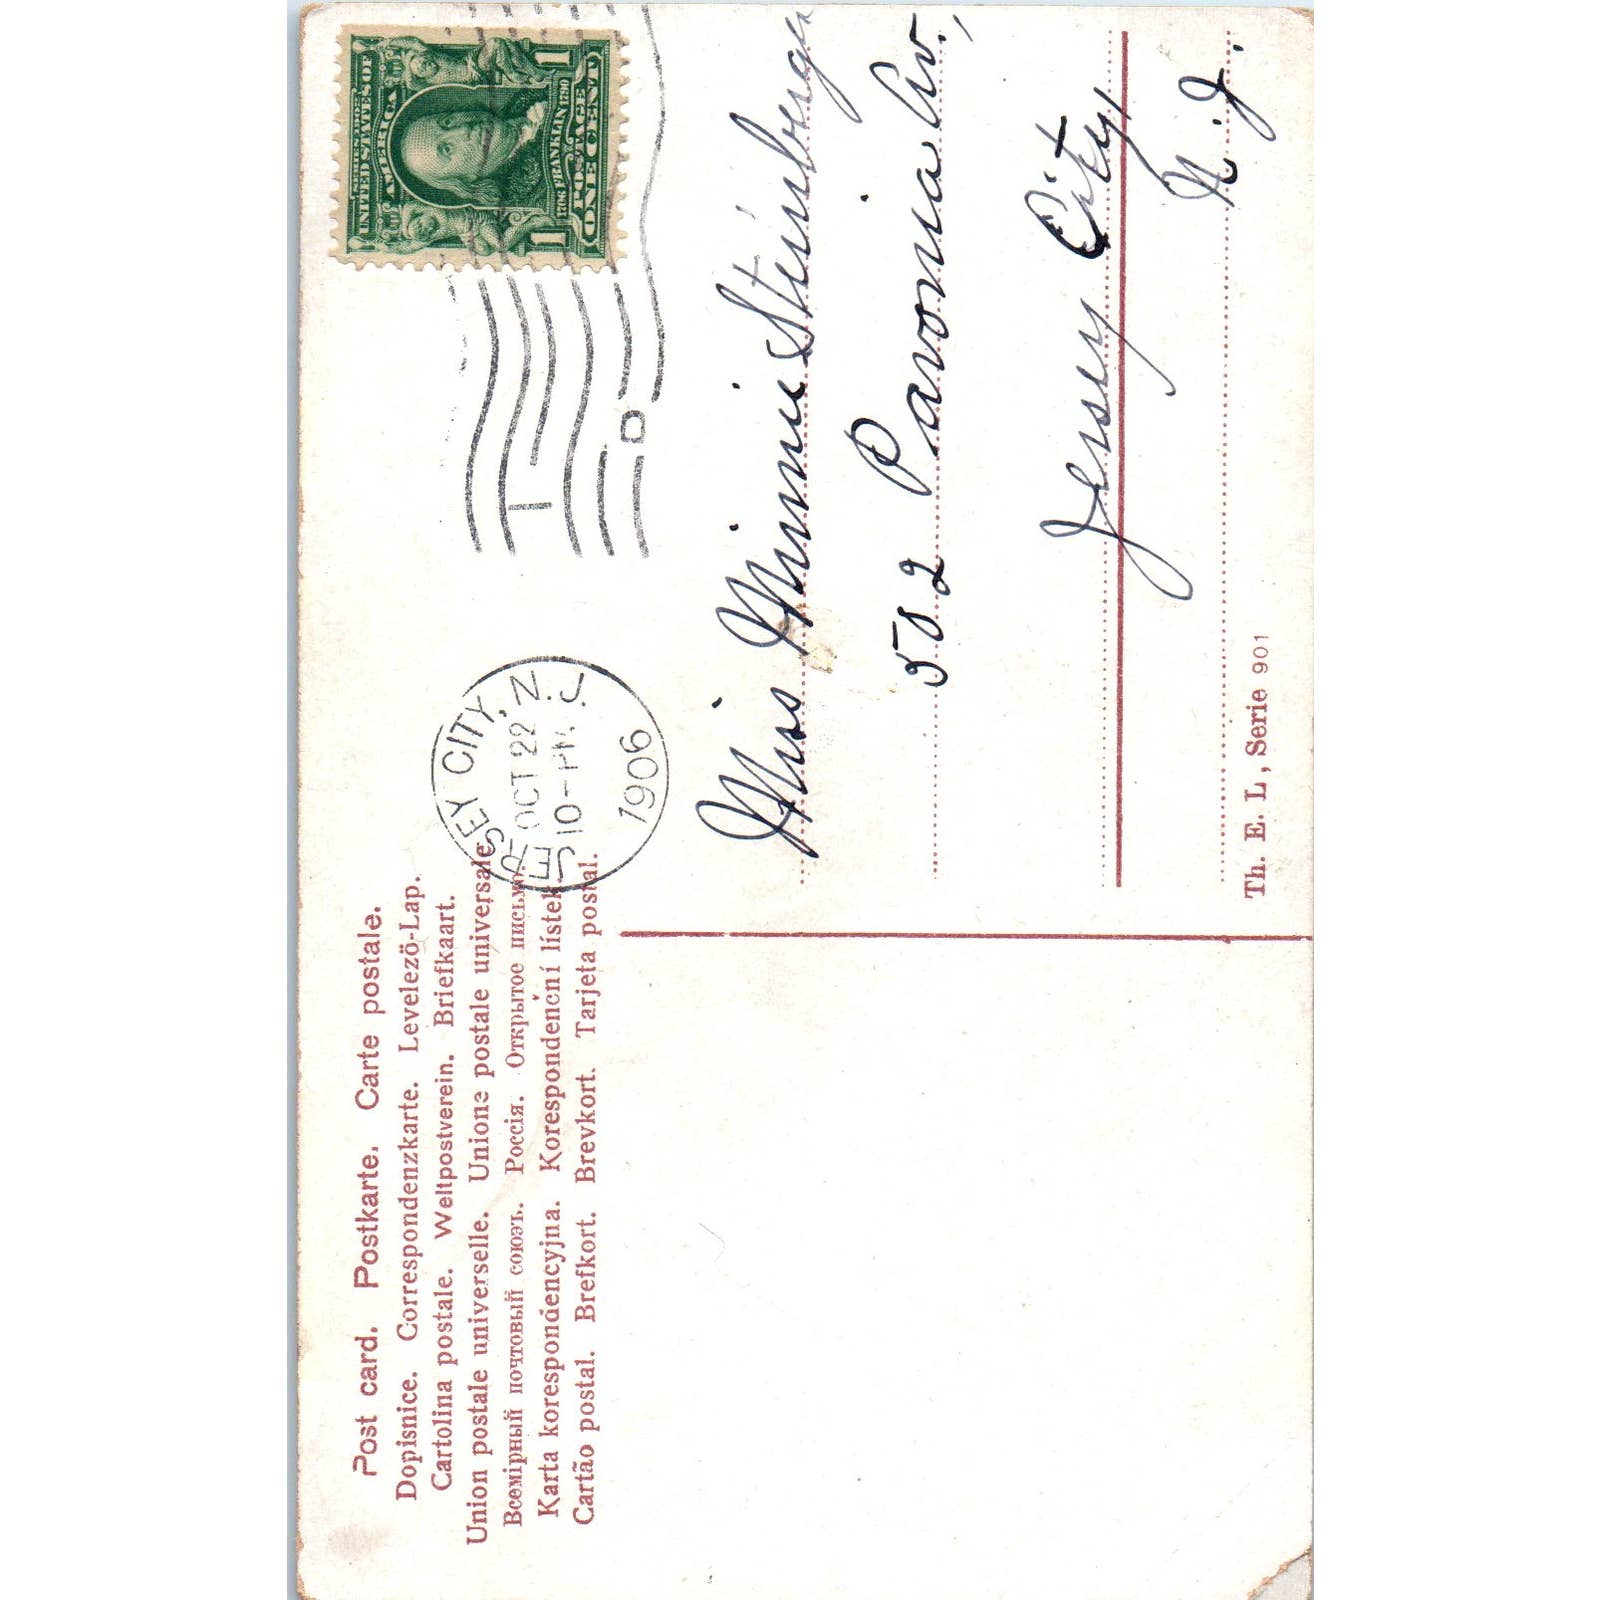 Post card. Postkarte. Carte postale.
Dopisnice. Correspondenzkarte. Levelező-Lap.
Cartolina postale. Weltpostverein. Briefkaart.
Union postale universelle. Unione postale universale
Всемірный почтовый союзъ. Россія. Открытое письмо.
Karta korespondencyjna. Korespondenční lístek
Cartão postal. Brefkort. Brevkort. Tarjeta postal.
JERSEY CITY, N.J.
OCT 22
10-PM
1906
SERIES 1902
UNITED STATES OF
AMERICA
1706 FRANKLIN 1790
POSTAGE
1 ONE CENT 1
Miss Minnie Steinberger
502 Pavonia Av.,
Jersey City,
N. J.
Th. E. L, Serie 901